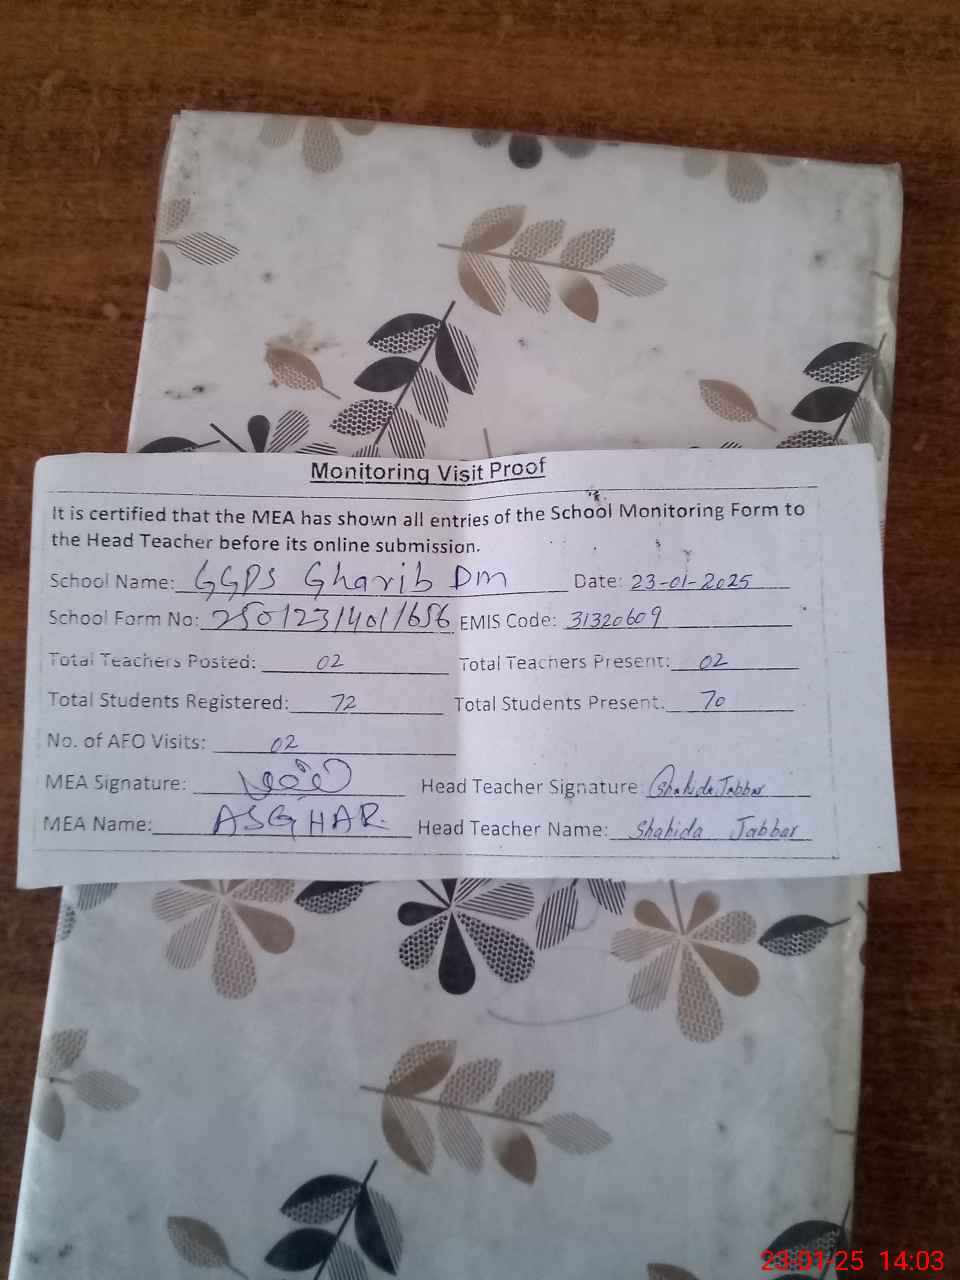 Monitoring Visit Proof
It is certified that the MEA has shown all entries of the School Monitoring Form to
the Head Teacher before its online submission.
School Name: GGPS Gharib Dm Date: 23-01-2025
School Form No: 25012314011656 EMIS Code: 31320609
Total Teachers Posted: 02 Total Teachers Present: 02
Total Students Registered: 72 Total Students Present: 70
No. of AEO Visits: 02
MEA Signature: Head Teacher Signature: Shahida Jabbar
MEA Name: ASGHAR Head Teacher Name: Shahida Jabbar
23-01-25 14:03